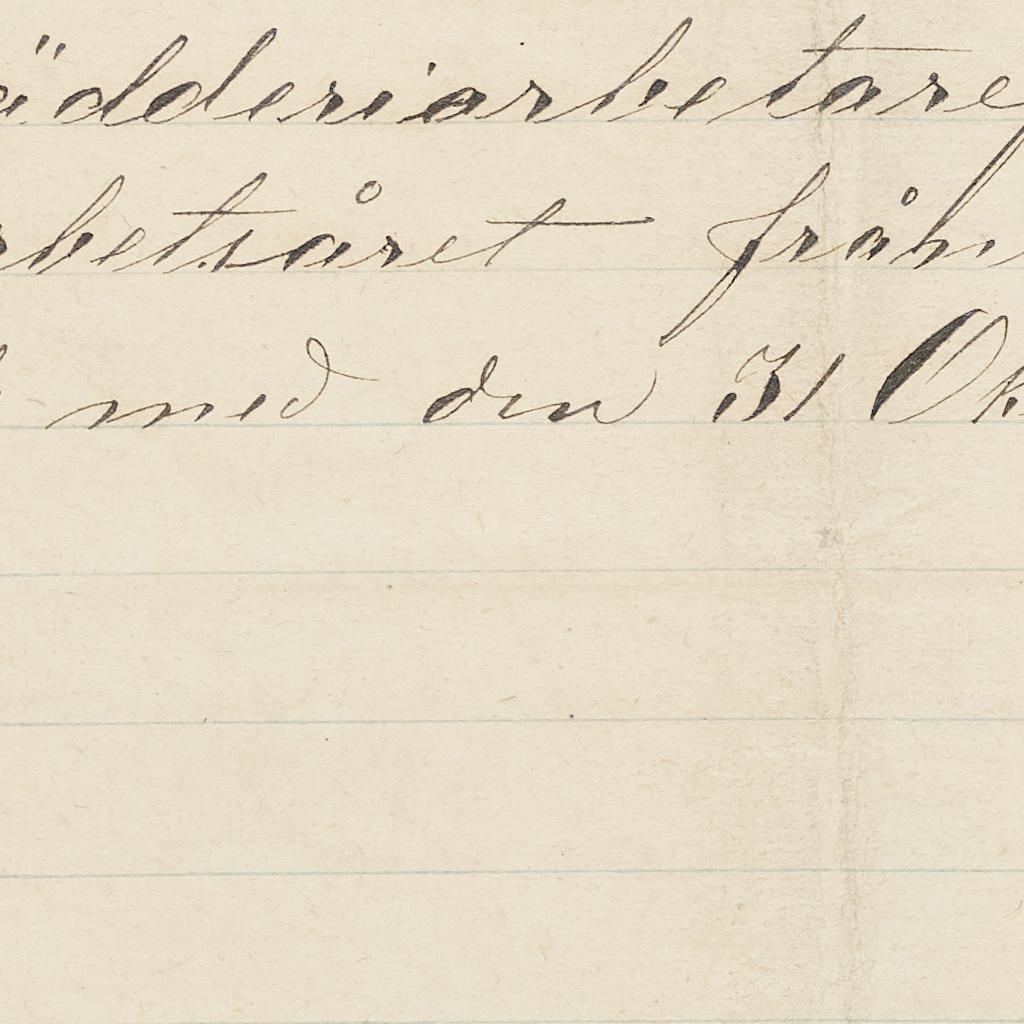 ädderiarbetare
rbetsåret från
med den 31 Ok